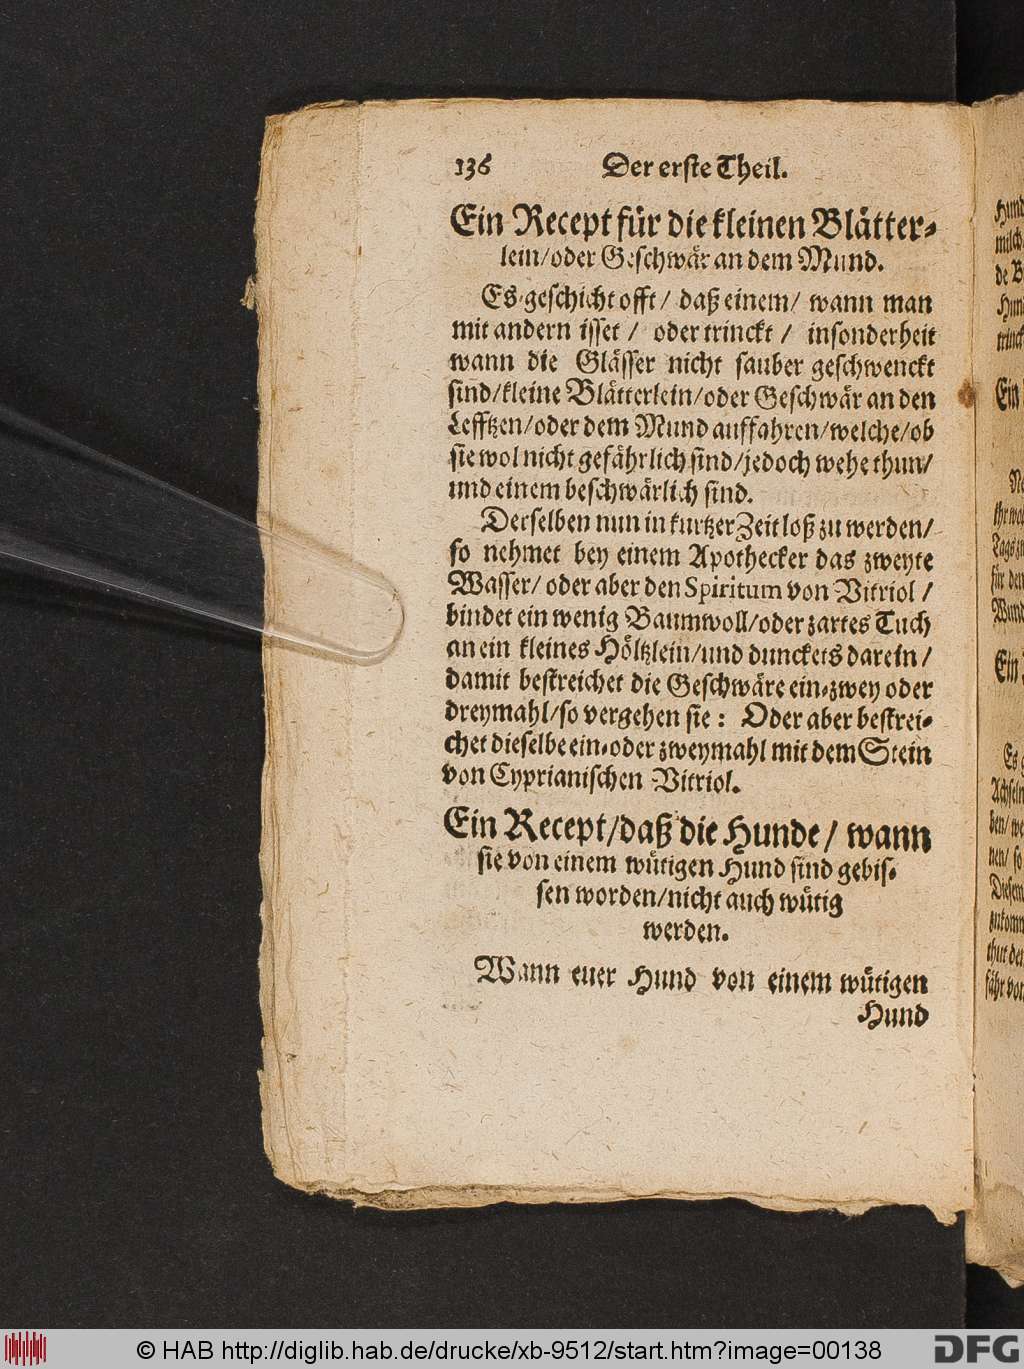 136 Der erste Theil.
Ein Recept für die kleinen Blätter-
lein/oder Geschwär an dem Mund.
Es geschicht offt/ daß einem/ wann man
mit andern isset / oder trinckt / insonderheit
wann die Glässer nicht sauber geschwenckt
sind/kleine Blätterlein/oder Geschwär an den
Lefftzen/oder dem Mund auffahren/welche/ob
sie wol nicht gefährlich sind/jedoch wehe thun/
und einem beschwärlich sind.
Derselben nun in kurtzer Zeit loß zu werden/
so nehmet bey einem Apothecker das zweyte
Wasser/ oder aber den Spiritum von Vitriol /
bindet ein wenig Baumwoll/oder zartes Tuch
an ein kleines Höltzlein/und dunckets darein/
damit bestreichet die Geschwäre ein-zwey oder
dreymahl/so vergehen sie: Oder aber bestrei-
chet dieselbe ein-oder zweymahl mit dem Stein
von Cyprianischen Vitriol.
Ein Recept/daß die Hunde/ wann
sie von einem wütigen Hund sind gebis-
sen worden/nicht auch wütig
werden.
Wann euer Hund von einem wütigen
Hund
Hund
milch
de B
Hun
trinck
Ein
Ne
ihr wo
Tags zu
für den
Wund
Ein
Es g
Achseln
ben/ we
nen/ so
Diesem
zukomm
thut der
fähr von
© HAB http://diglib.hab.de/drucke/xb-9512/start.htm?image=00138
DFG